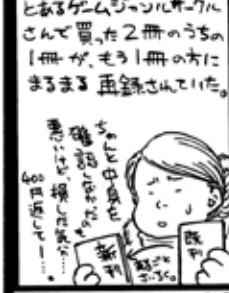 とあるゲームジャンルサークル
さんで買った2冊のうちの
1冊が、もう1冊の方に
まるまる再録されていた。
ちゃんと中身を
確認しなかったのも
悪いけど、損した気が…
400円返してー…。
既刊
新刊